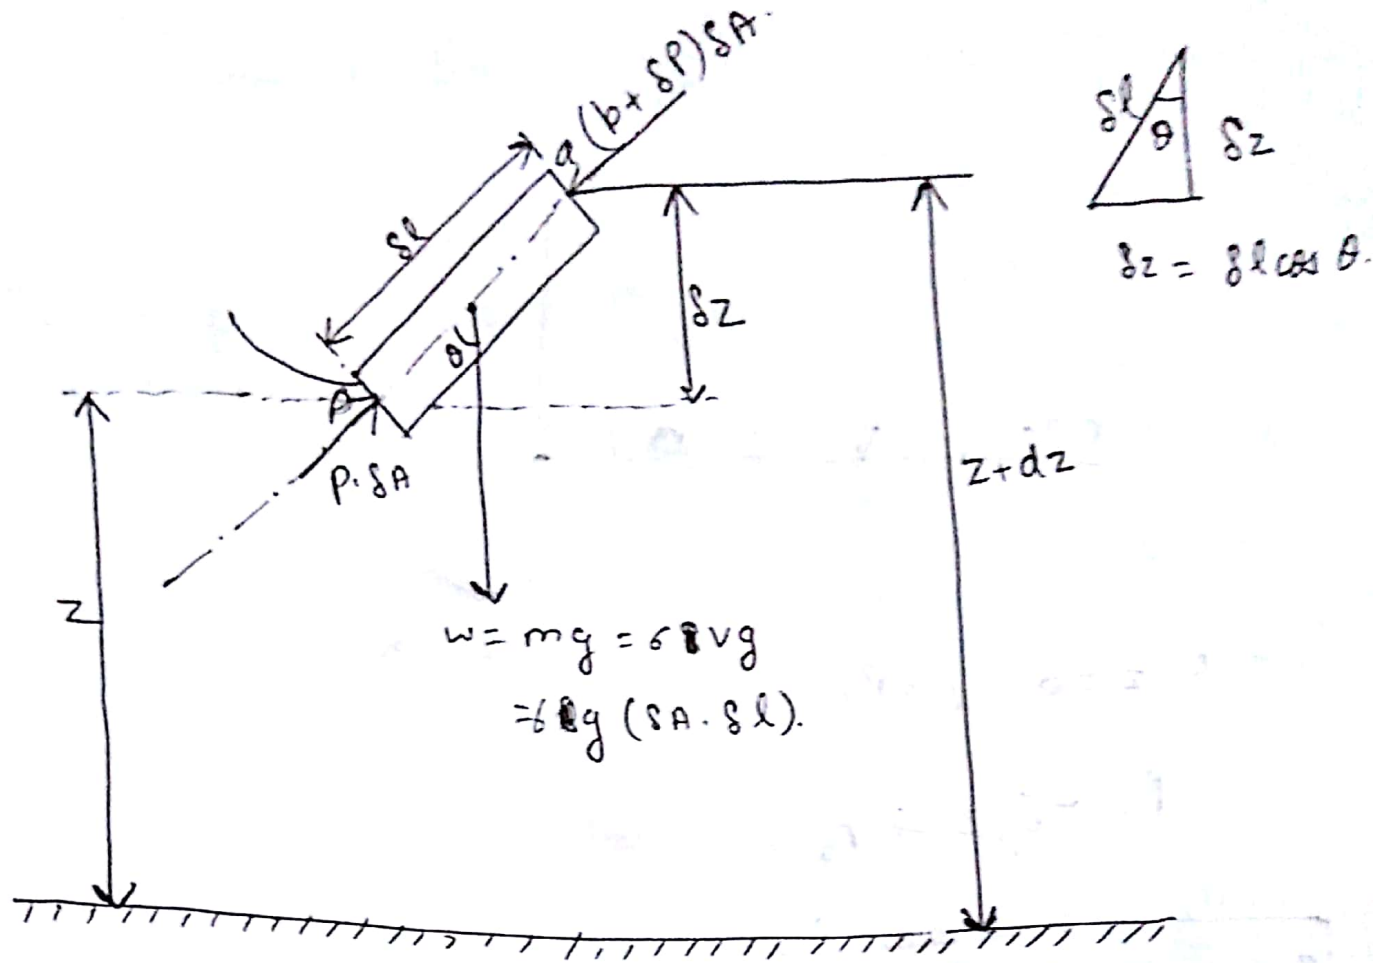 (p + δP) δA.
q
δl
θ
δz
δz = δl cos θ.
δl
δz
θ
P
P. δA
z + dz
z
w = mg = vg
= g (δA. δl).